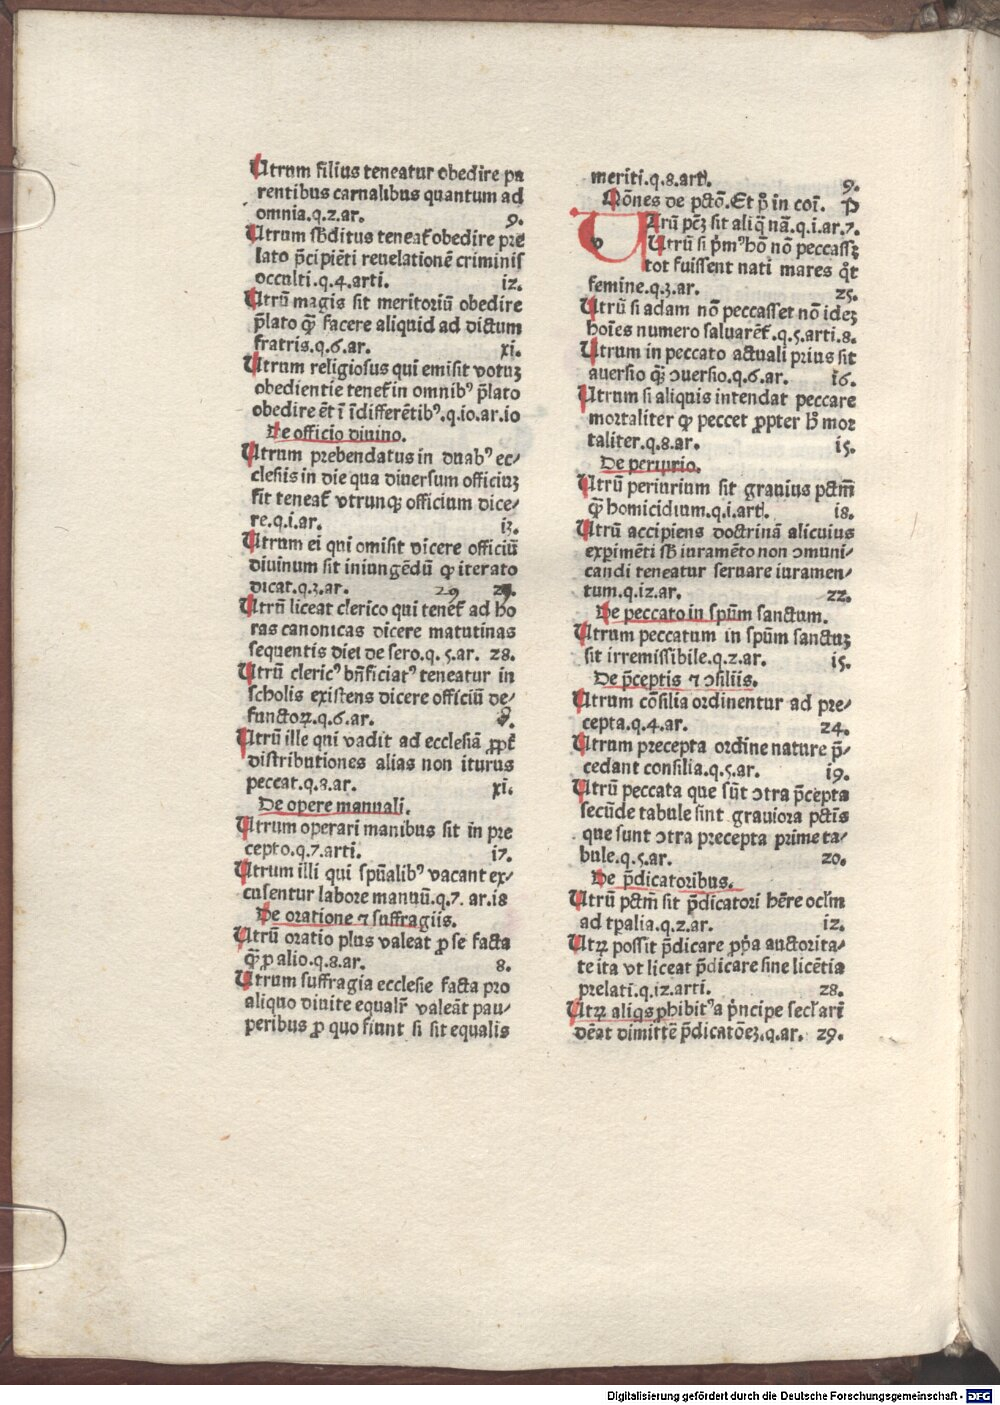 Utrum filius teneatur obedire pa
rentibus carnalibus quantum ad
omnia.q.2.ar. 9.
Utrum sb̄ditus teneat᷑ obedire pre
lato p̄cipiēti reuelationē criminis
occulti.q.4.arti. i2.
Utrū magis sit meritoriū obedire
p̄lato q̄ꝫ facere aliquid ad dictum
fratris.q.6.ar. xi.
Utrum religiosus qui emisit votuꝫ
obedientie tenet᷑ in omnibꝰ p̄lato
obedire ēt ī īdifferētibꝰ.q.io.ar.io
De officio diuino.
Utrum prebendatus in duabꝰ ec⸗
clesiis in die qua diuersum officiuꝫ
fit teneat᷑ vtrunqꝫ officium dice⸗
re.q.i.ar. i3.
Utrum ei qui omisit dicere officiū
diuinum sit iniungēdū ꝙ iterato
dicat.q.3.ar. 29 29.
Utrū liceat clerico qui tenet᷑ ad ho
ras canonicas dicere matutinas
sequentis diei de sero.q.5.ar. 28.
Utrū clericꝰ bn̄ficiatꝰ teneatur in
scholis existens dicere officiū de⸗
functoꝝ.q.6.ar. 8.
Utrū ille qui vadit ad ecclesiā ꝓpt᷑
distributiones alias non iturus
peccat.q.8.ar. xi.
De opere manuali.
Utrum operari manibus sit in pre
cepto.q.7.arti. i7.
Utrum illi qui spūalibꝰ vacant ex⸗
cusentur labore manuū.q.7.ar.i8
De oratione ⁊ suffragiis.
Utrū oratio plus valeat ꝓ se facta
q̄ꝫ ꝓ alio.q.8.ar. 8.
Utrum suffragia ecclesie facta pro
aliquo diuite equalr̄ valeāt pau⸗
peribus ꝓ quo fiunt si sit equalis
meriti.q.8.arti. 9.
Qōnes de pctō.Et p̄ in coī. P
v
Utrū pēꝫ sit aliq̄ nā.q.i.ar.7.
Utrū si p̄mꝰ hō nō peccassꝫ
tot fuissent nati mares q̄t
femine.q.3.ar. 25.
Utrū si adam nō peccasset nō ideꝫ
hoīes numero saluarēt᷑.q.5.arti.8.
Utrum in peccato actuali prius sit
auersio q̄ꝫ ↄuersio.q.6.ar. i6.
Utrum si aliquis intendat peccare
mortaliter ꝙ peccet ꝓpter h̄ mor
taliter.q.8.ar. i5.
De periurio.
Utrū periurium sit grauius pctm̄
q̄ꝫ homicidium.q.i.arti. i8.
Utrū accipiens doctrinā alicuius
experimēti sb̄ iuramēto non ↄmuni⸗
candi teneatur seruare iuramen⸗
tum.q.i2.ar. 22.
De peccato in spūm sanctum.
Utrum peccatum in spūm sanctuꝫ
sit irremissibile.q.2.ar. i5.
De p̄ceptis ⁊ ↄsiliis.
Utrum cōsilia ordinentur ad pre⸗
cepta.q.4.ar. 24.
Utrum precepta ordine nature p̄⸗
cedant consilia.q.5.ar. i9.
Utrū peccata que sūt ↄtra p̄cepta
secūde tabule sint grauiora pctīs
que sunt ↄtra precepta prime ta⸗
bule.q.5.ar. 20.
De p̄dicatoribus.
Utrū pctm̄ sit p̄dicatori hēre ocl̄m
ad tp̄alia.q.2.ar. i2.
Utꝝ possit p̄dicare ꝓp̄a auctorita⸗
te ita vt liceat p̄dicare sine licētia
prelati.q.i2.arti. 28.
Utꝝ aliqs ꝓhibitꝰ a p̄ncipe secl̄ari
dēat dimittē p̄dicatōeꝫ.q.ar. 29.
Digitalisierung gefördert durch die Deutsche Forschungsgemeinschaft - DFG